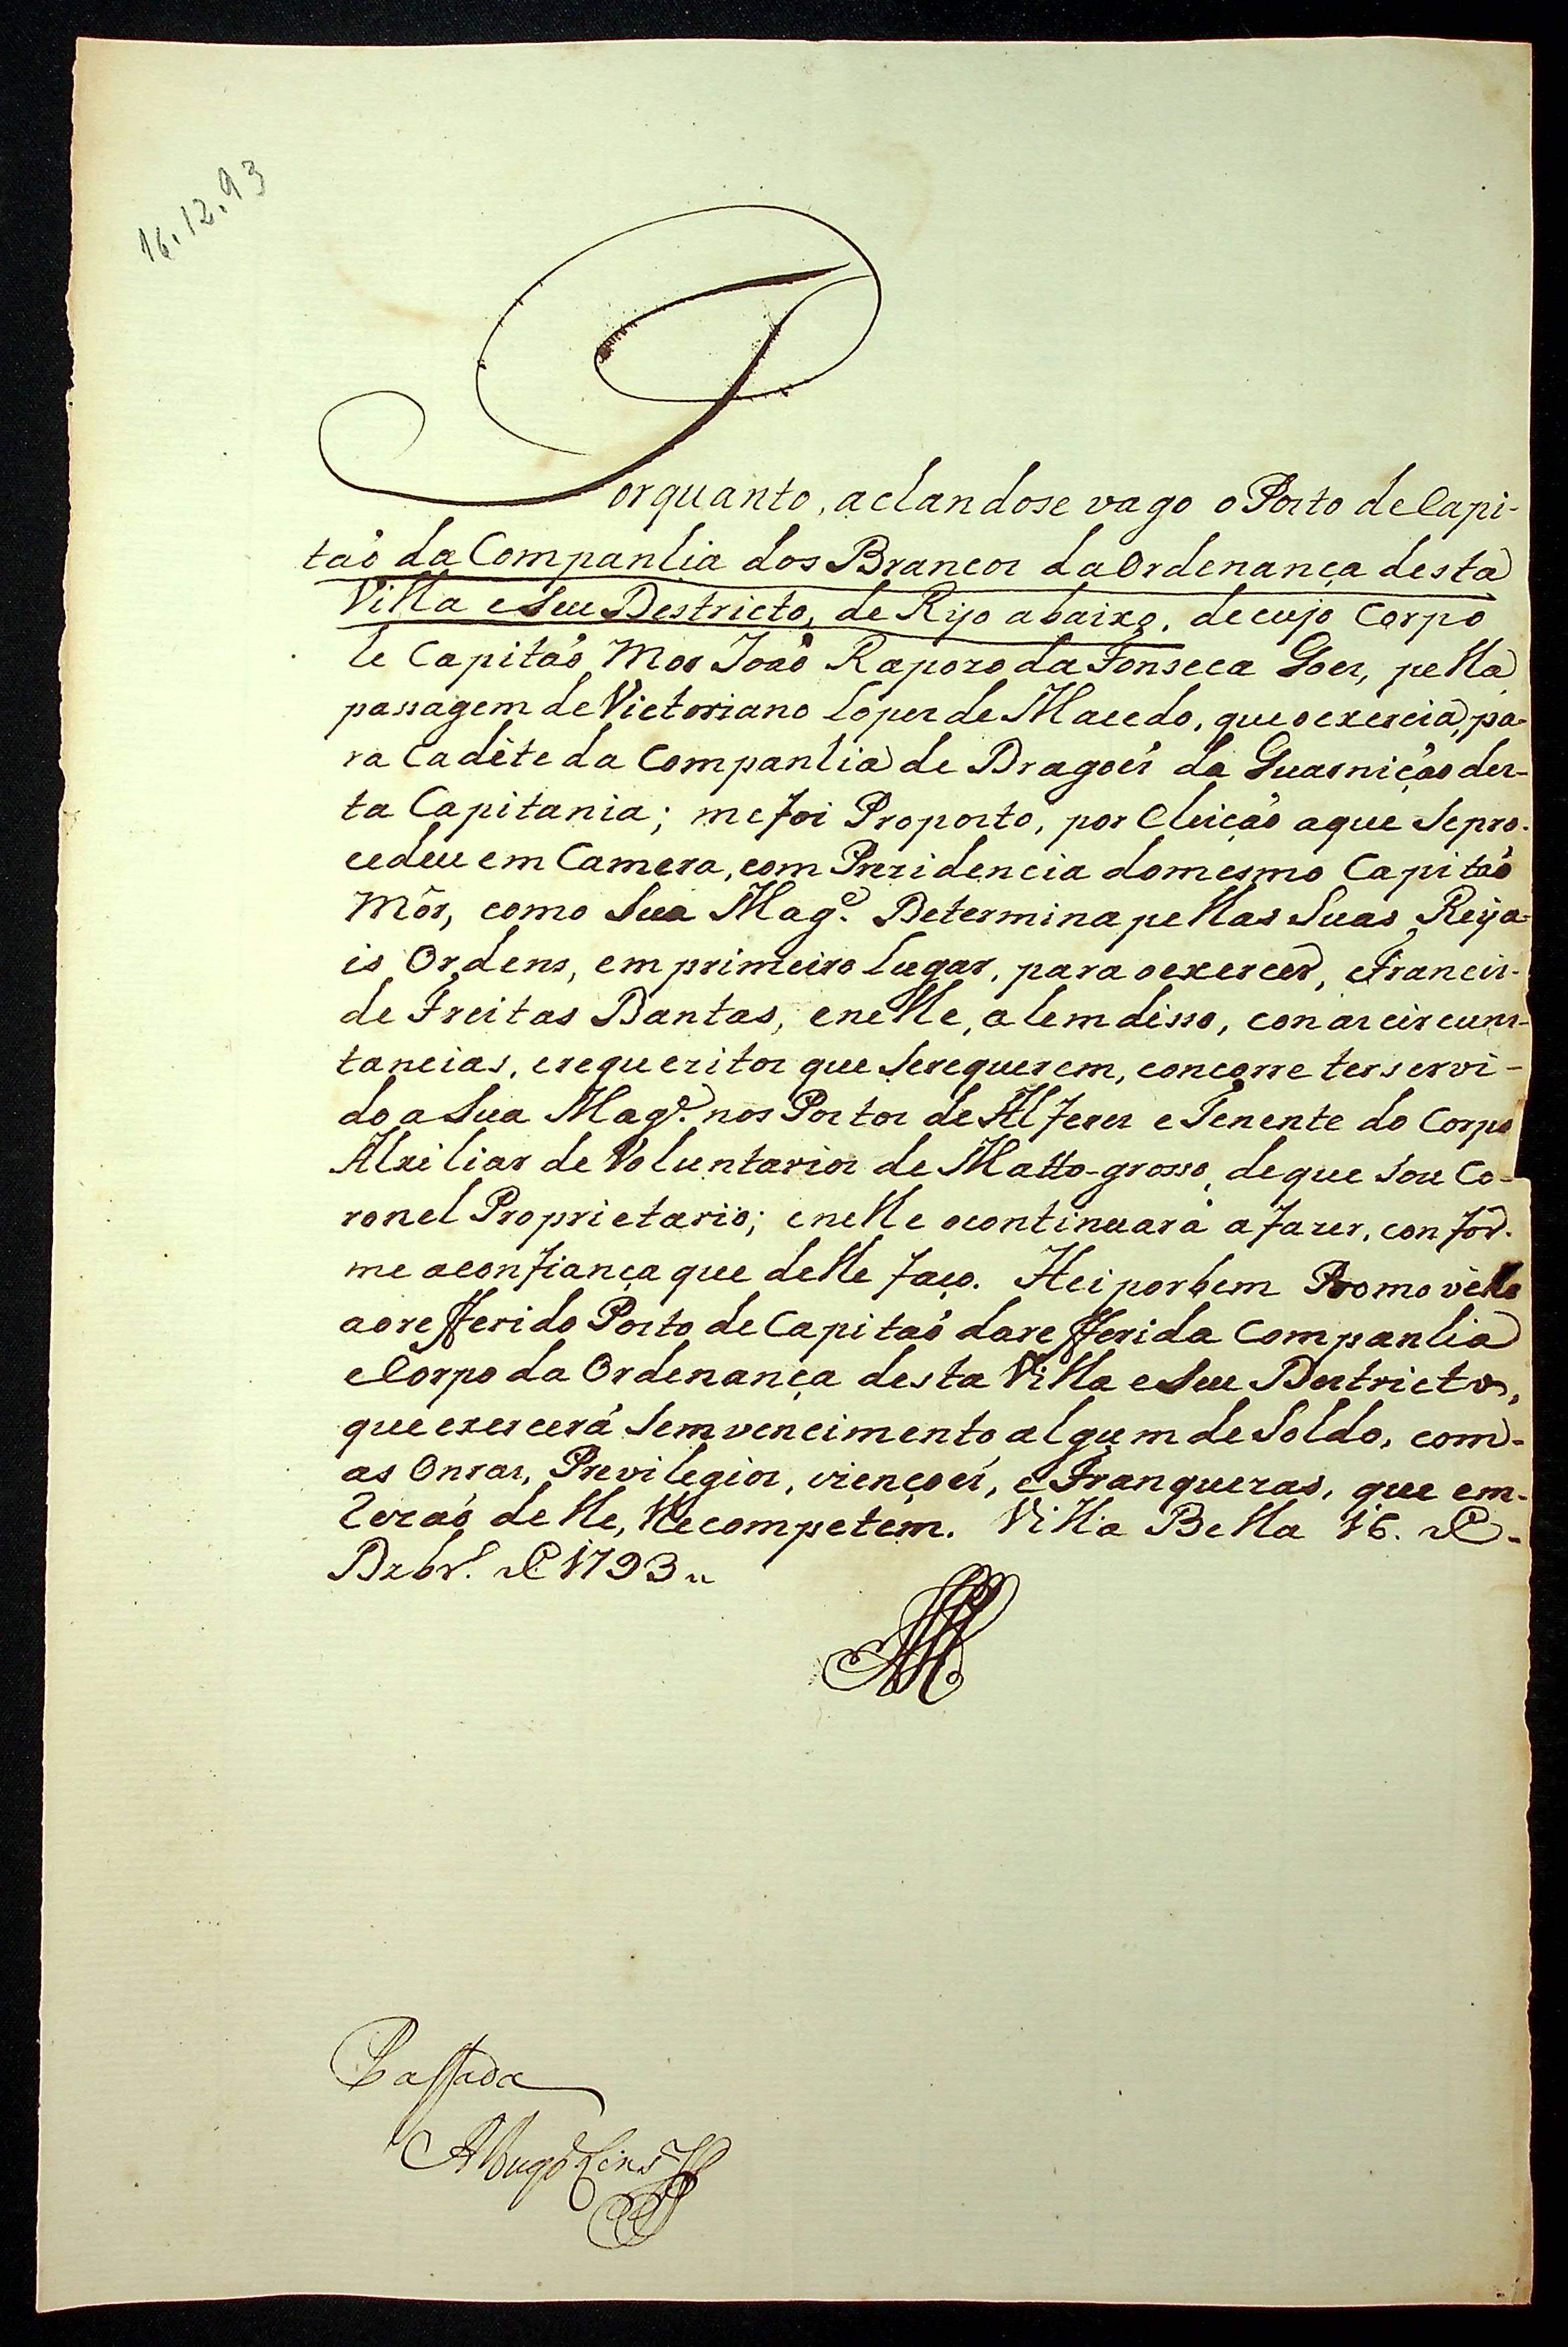 16.12.93
Porquanto, achandose vago o Posto de Capi-
taõ da Companhia dos Brancos da Ordenança desta
Villa e Seu Destricto, de Rijo abaixo, de cujo Corpo
he Capitaõ Mor Joaõ Rapozo da Fonseca Goes, pella
passagem de Victoriano Lopes de Macedo, que o exercia, pa-
ra Cadête da Companhia de Dragoẽs da Guarniçaõ des-
ta Capitania; me foi Proposto, por Eleiçaõ aque Sepro-
cedeu em Camera, com Prezidencia domesmo Capitaõ
Môr, como Sua Mag.e Determina pellas Suas Reya-
is Ordens, em primeiro lugar, para o exercer, Francis-
de Freitas Dantas, enelle, alem disso, con as circuns-
tancias, erequezitos que Serequerem, concorre ter servi-
do a Sua Mag.e nos Postos de Alferes e Tenente do Corpo
Alxiliar de Voluntarios de Matto-grosso, de que Sou Co-
ronel Proprietario; enelle ocontinuará a fazer, confor-
me aconfiança que delle faço. Hei por bem Promovêllo
ao refferido Posto de Capitaõ da refferida Companhia
e Corpo da Ordenança desta Villa e Seu Destricto,
que exercerá Sem vencimento algum de Soldo, com-
as Onras, Previlegios, izençoẽs, e Franquezas, que em-
Rezaõ delle, lhe competem. Villa Bella 16. de
Dezbr.o de 1793,,
Passada